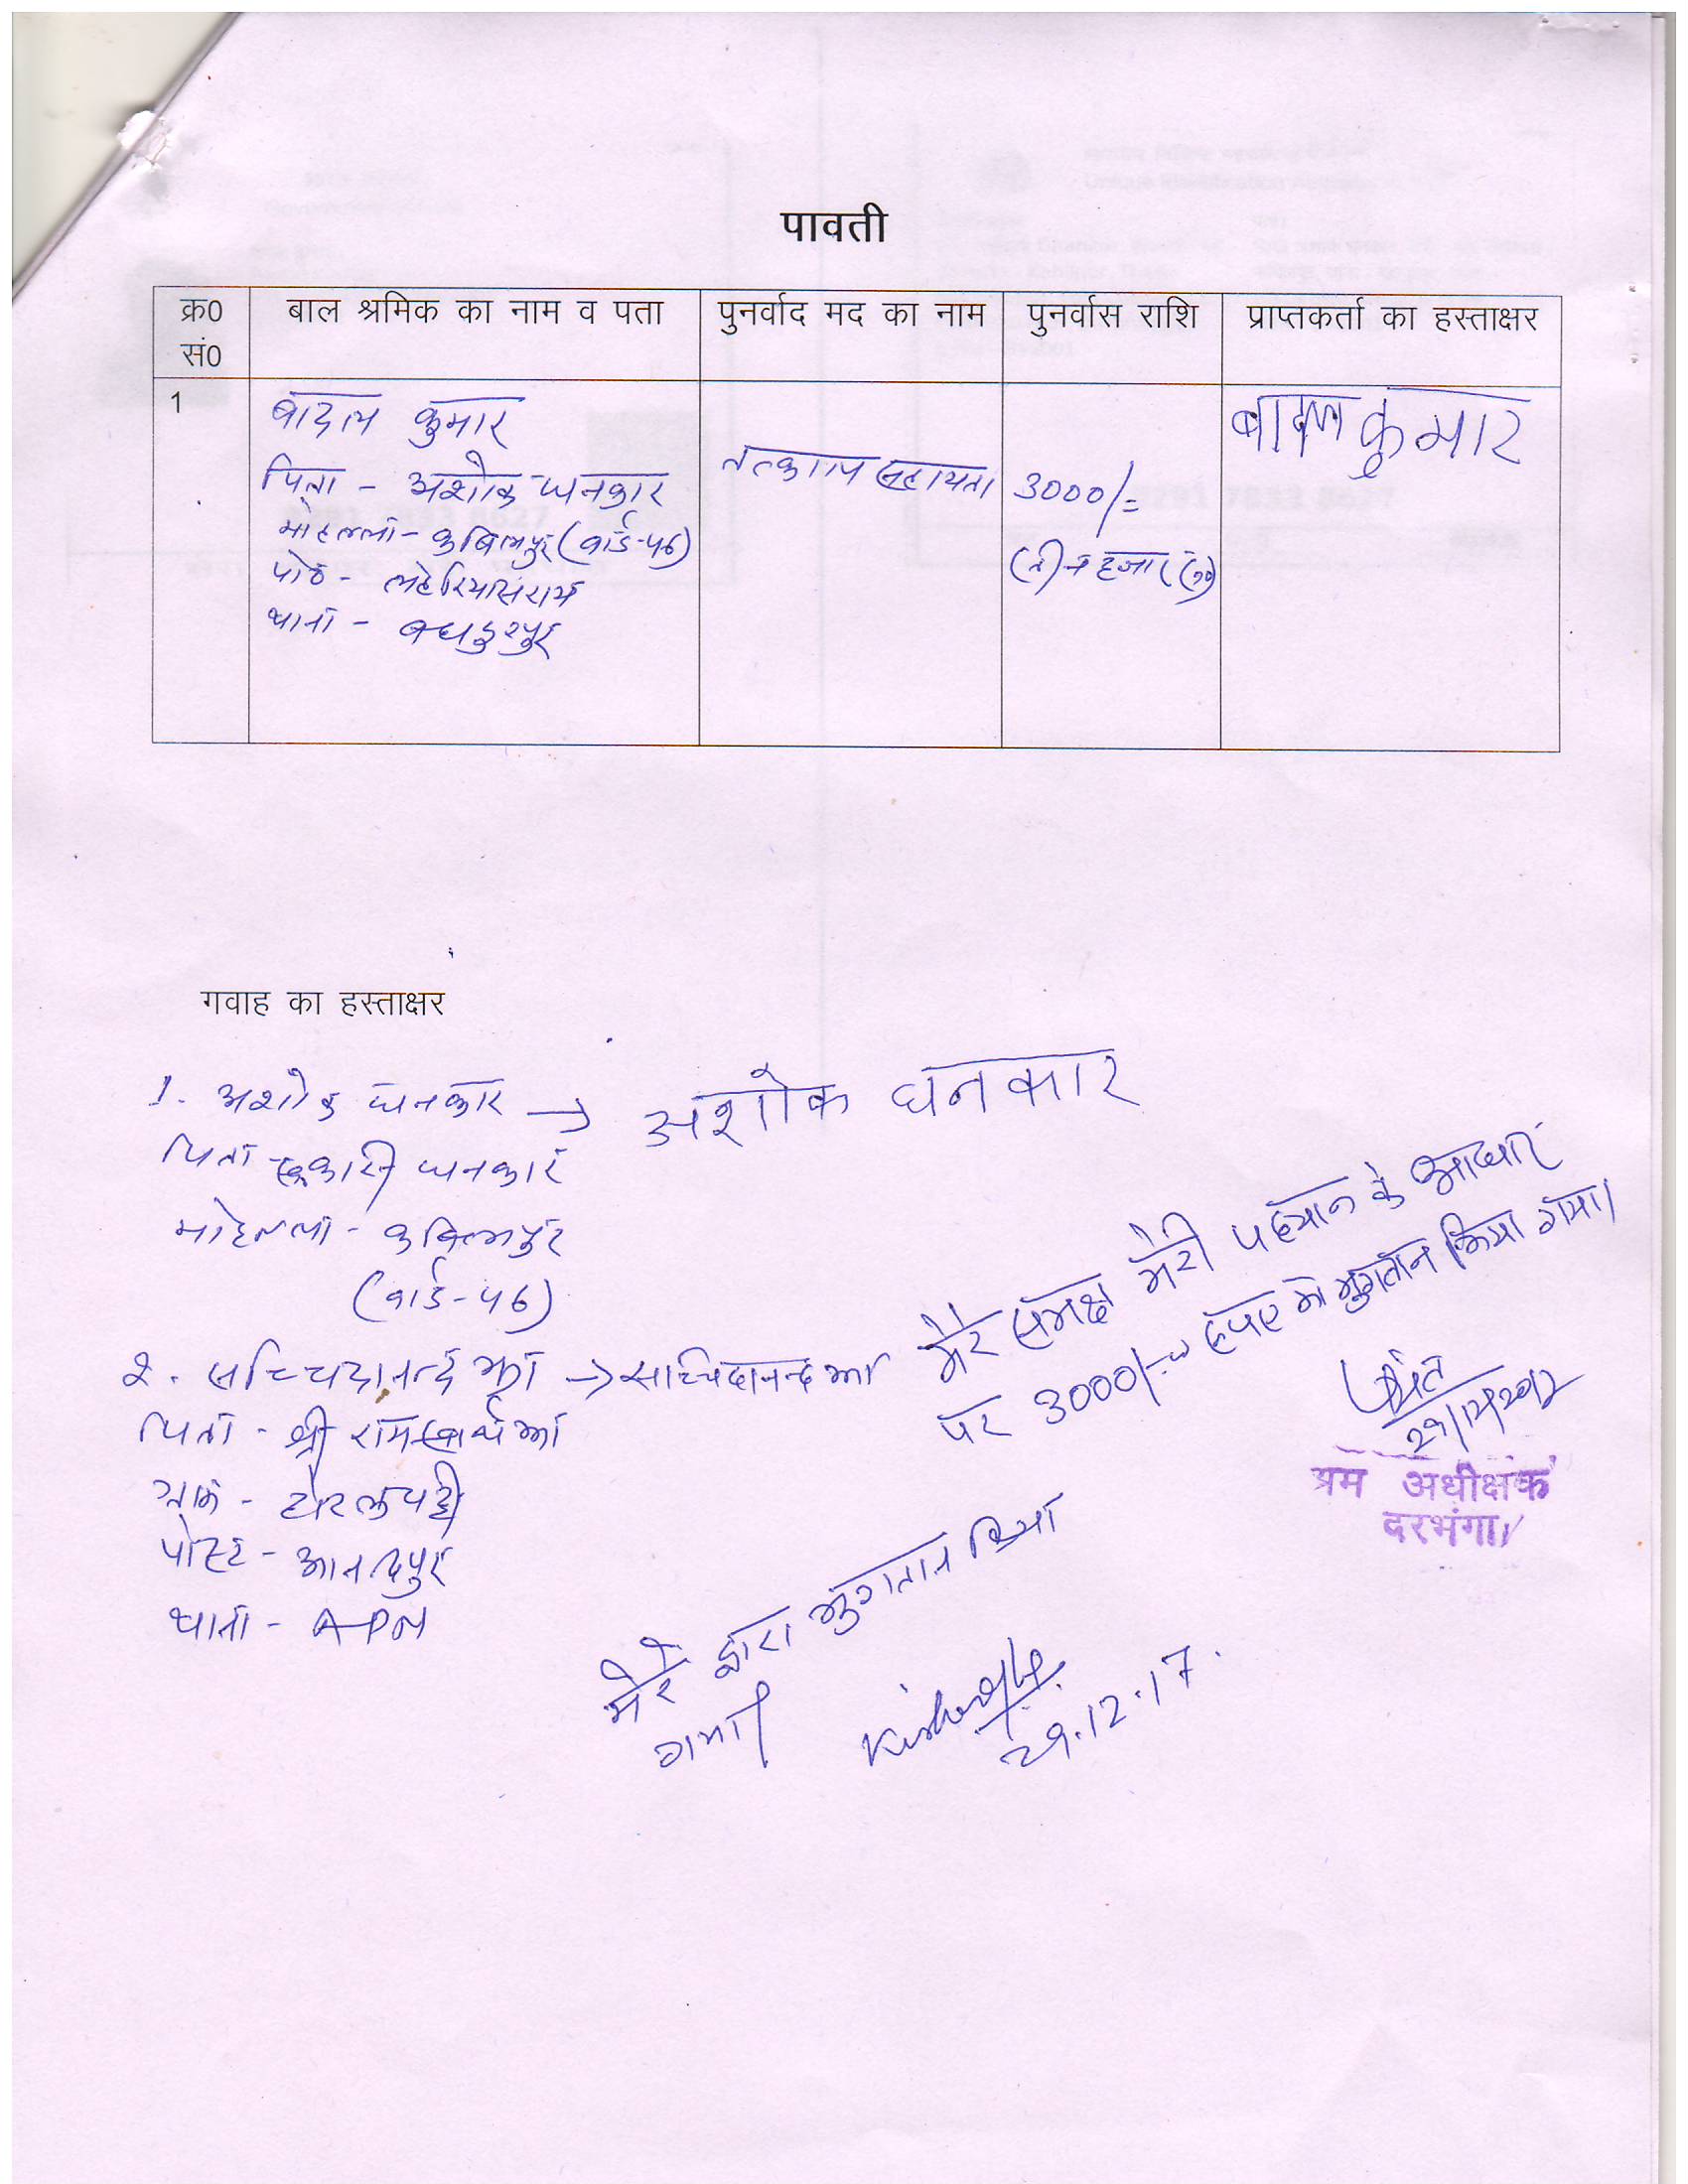 पावती
क्र0 सं0 बाल श्रमिक का नाम व पता पुनर्वाद मद का नाम पुनर्वास राशि प्राप्तकर्ता का हस्ताक्षर
1
बादल कुमार
पिता - अशोक धनकार
मोहल्ला - कबिलपुर (वार्ड-46)
पो0 - लहेरियासराय
थाना - बहादुरपुर
तत्काल सहायता
3000/=
(तीन हजार रू0)
बादल कुमार
गवाह का हस्ताक्षर
1. अशोक धनकार → अशोक धनकार
पिता - धनकार
मोहल्ला - कबिलपुर
(वार्ड-46)
2. सच्चिदानन्द झा → सच्चिदानन्द झा
पिता - श्री रामस्वार्थ झा
ग्राम -
पोस्ट - आनन्दपुर
थाना - APM
मेरे समक्ष मेरी पहचान के आधार
पर 3000/- रूपए का भुगतान किया गया।
29/12/2017
श्रम अधीक्षक
दरभंगा।
मेरे द्वारा भुगतान किया
गया।
29.12.17.